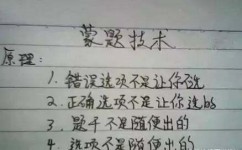 蒙题技术
原理:
1. 错误选项不是让你不选
2. 正确选项不是让你选的
3. 题干不是随便出的
4. 选项不是随便出的